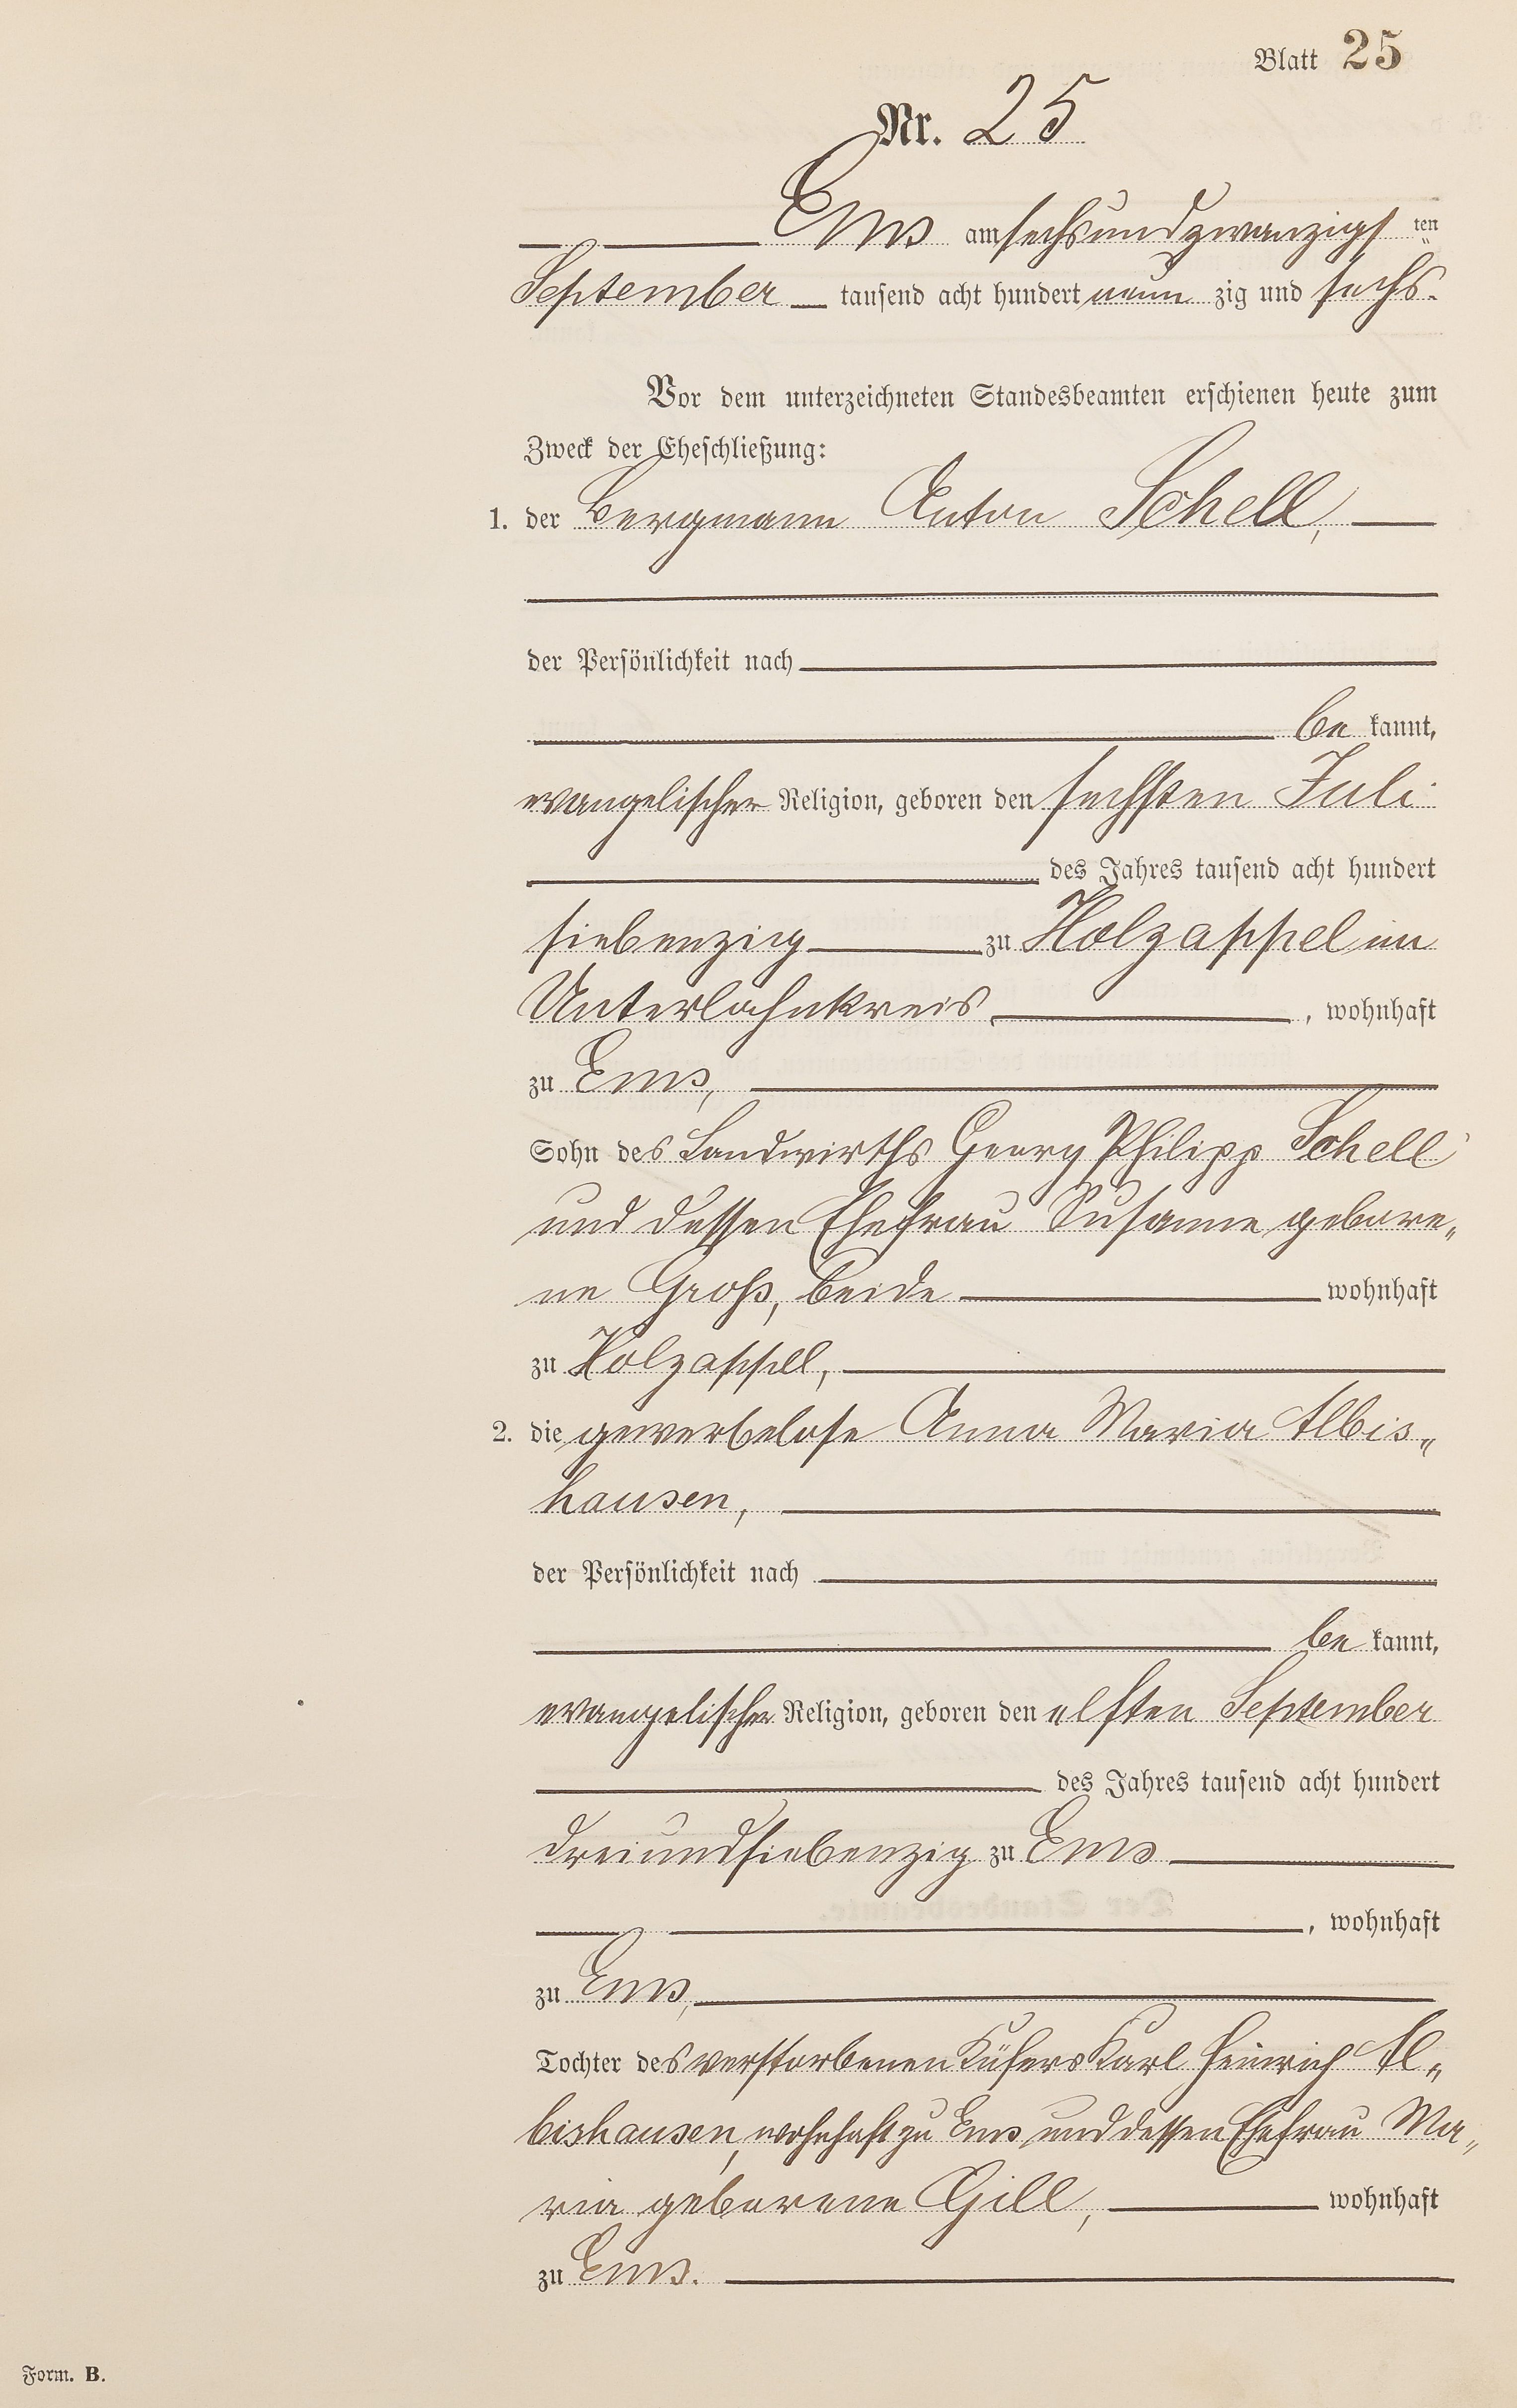 Blatt 25
Nr. 25
Ems am sechsundzwanzigsten
September tausend acht hundert neunzig und sechs.
Vor dem unterzeichneten Standesbeamten erschienen heute zum
Zweck der Eheschließung:
1. der Bergmann Anton Schell,
der Persönlichkeit nach
bekannt,
evangelischer Religion, geboren den sechsten Juli
des Jahres tausend acht hundert
siebenzig zu Holzappel im
Unterlahnkreis, wohnhaft
zu Ems,
Sohn des Landwirths Georg Philipp Schell
und dessen Ehefrau Susanne gebore„
ne Groß, beide wohnhaft
zu Holzappel,
2. die gewerbelose Anna Maria Albis„
hausen,
der Persönlichkeit nach
bekannt,
evangelischer Religion, geboren den elften September
des Jahres tausend acht hundert
dreiundsiebenzig zu Ems
, wohnhaft
zu Ems,
Tochter des verstorbenen Küfers Karl Heinrich Al„
bishausen, wohnhaft zu Ems und dessen Ehefrau Ma„
ria geborene Gill, wohnhaft
zu Ems.
Form. B.